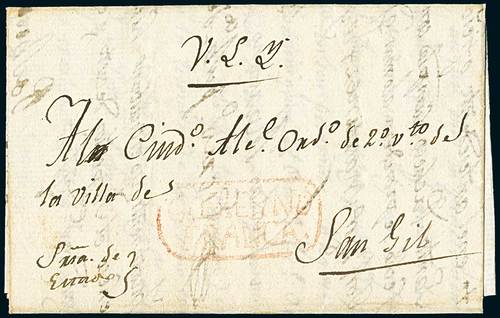 V. L. Y.
Al Ciud.º Alc.e Ord.º de 2º v.to de
la villa de
San Gil
Sría. de